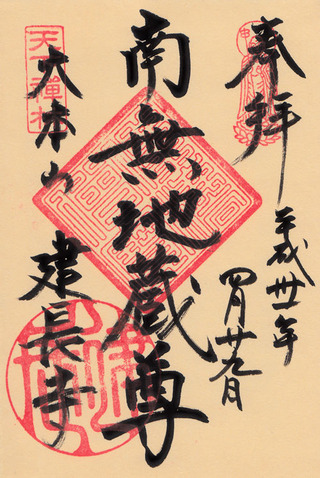 奉拝
平成卅一年
四月廿九日
南無地蔵尊
天下禅林
大本山
建長寺